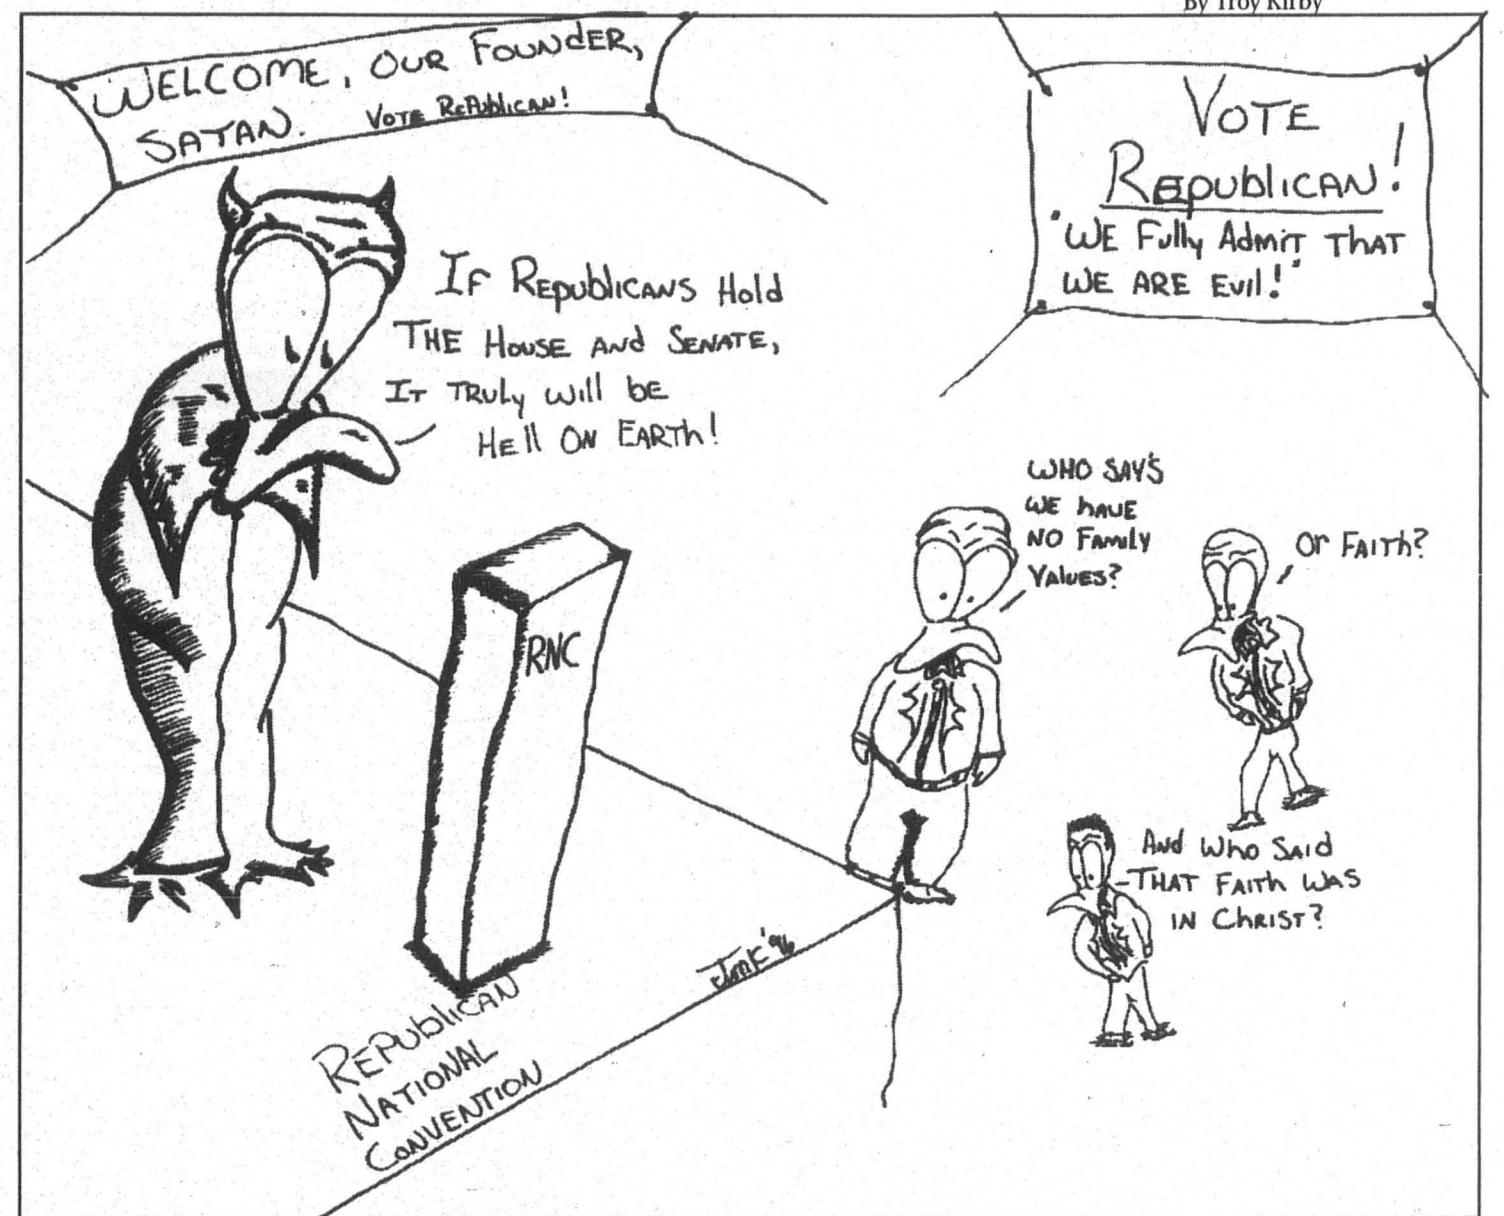 By Troy Kirby
WELCOME, OUR FOUNDER,
SATAN. VOTE REPUBLICAN!
VOTE
REPUBLICAN!
"WE Fully Admit THAT
WE ARE Evil!"
IF REPUBLICANS Hold
THE HOUSE ANd SENATE,
IT TRULY Will bE
HEll ON EARTH!
WHO SAY'S
WE HAVE
NO FAMILY
VALUES?
OR FAITH?
RNC
ANd WHO SAId
THAT FAITH WAS
IN CHRIST?
'96
REPUBLICAN
NATIONAL
CONVENTION